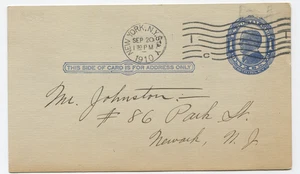 NEW YORK, N.Y. STA. Y
SEP 20
1910
THIS SIDE OF CARD IS FOR ADDRESS ONLY
Mr. Johnston.
# 86 Park St.
Newark, N. J.